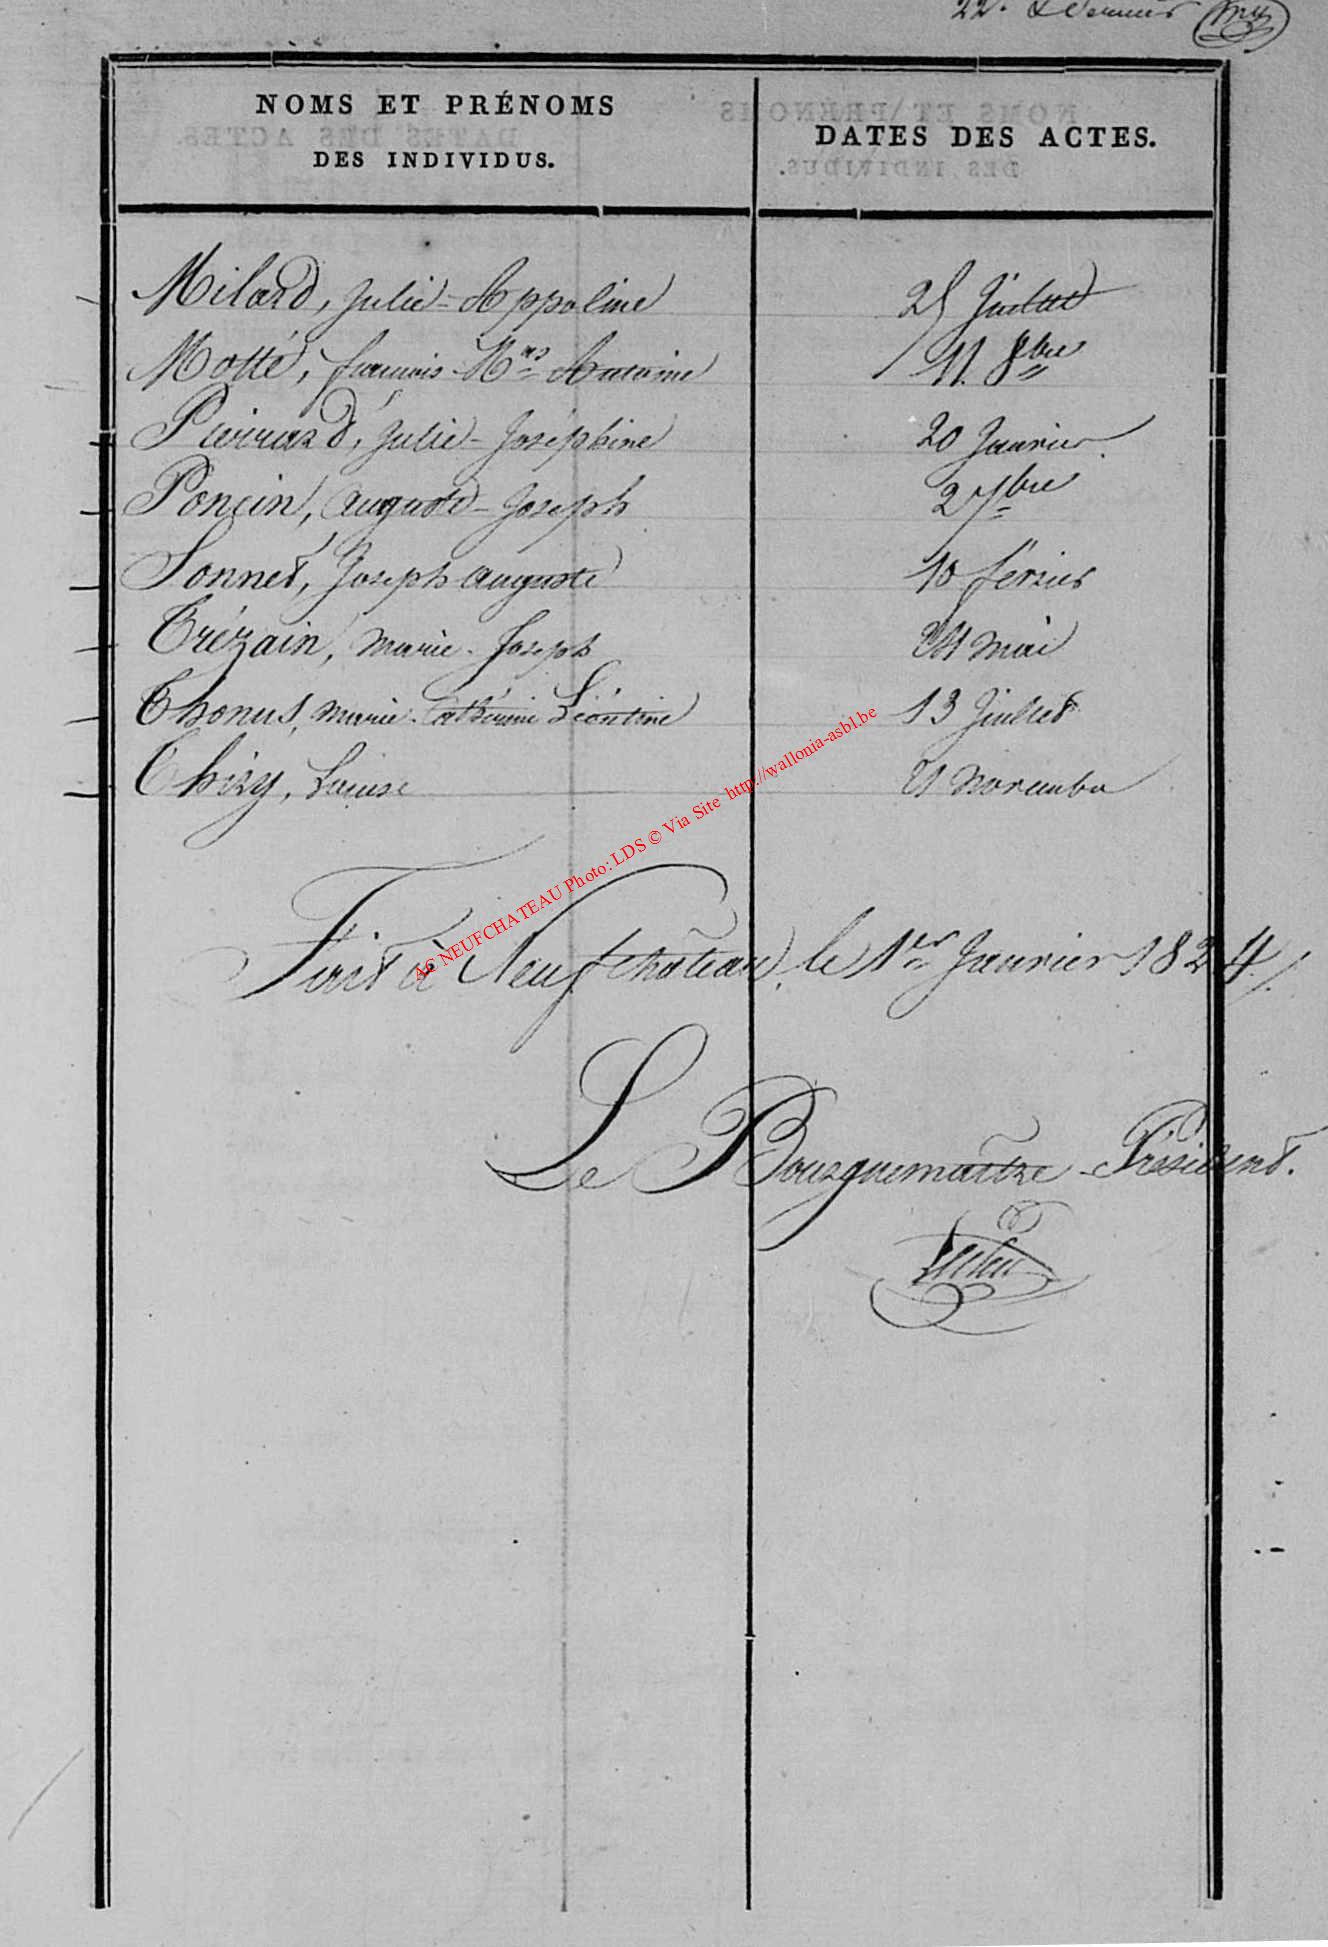 22. & dernier
NOMS ET PRÉNOMS
DES INDIVIDUS.
DATES DES ACTES.
Milard, Julie-Appoline
25 Juillet
Motté, francois-Nas Antoine
11. 8bre
Pierrard, Julie-Joséphine
20 Janvier
Poncin, Auguste-Joseph
2 7bre
Sonnet, Joseph auguste
10 février
Trézain, marie-Joseph
mai
Thonus, marie-Catherine Léontine
13 Juillet
Thiry, Louise
21 Novembre
Fait à Neufchâteau, le 1er Janvier 1824/.
Le Bourguemaitre-Président.
AC NEUFCHATEAU Photo: LDS © Via Site http://wallonia-asbl.be